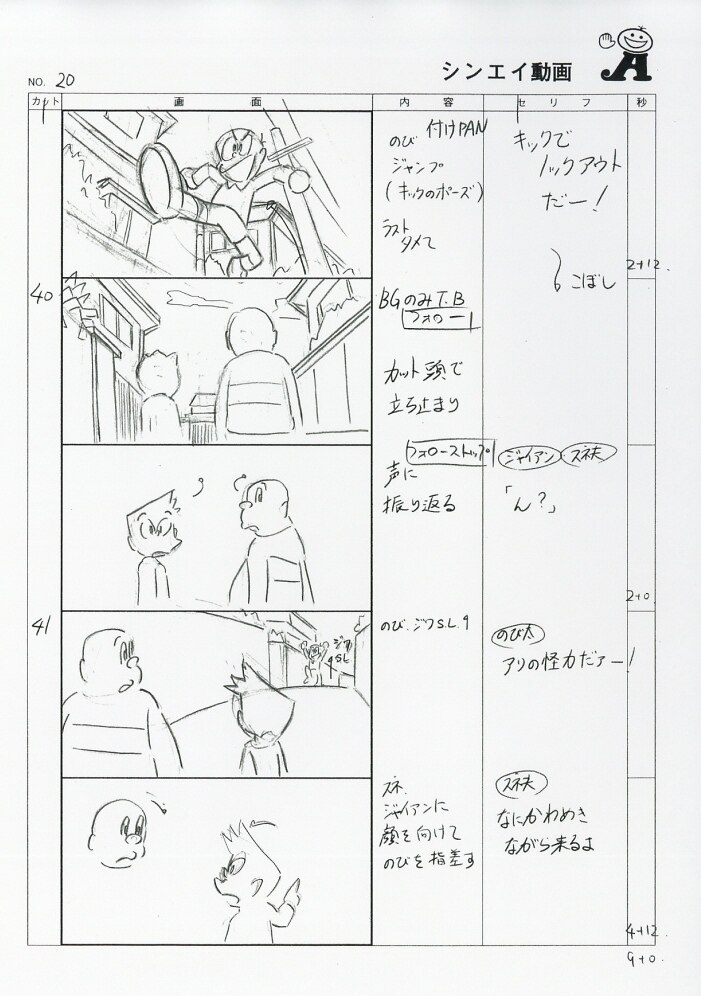 シンエイ動画
A
NO. 20
カット 画面 内容 セリフ 秒
のび 付けPAN
ジャンプ
(キックのポーズ)
ラスト
タメて
キックで
ノックアウト
だー!
こぼし
2+12
40
BGのみT.B
フォロー
カット頭で
立ち止まり
フォローストップ
声に
振り返る
ジャイアン スネ夫
「ん?」
2+0
41
ジワ
S.L
のび.ジワS.L.
のび太
アリの怪力だァー!
スネ.
ジャイアンに
顔を向けて
のびを指差す
スネ夫
なにかわめき
ながら来るよ
4+12
9+0